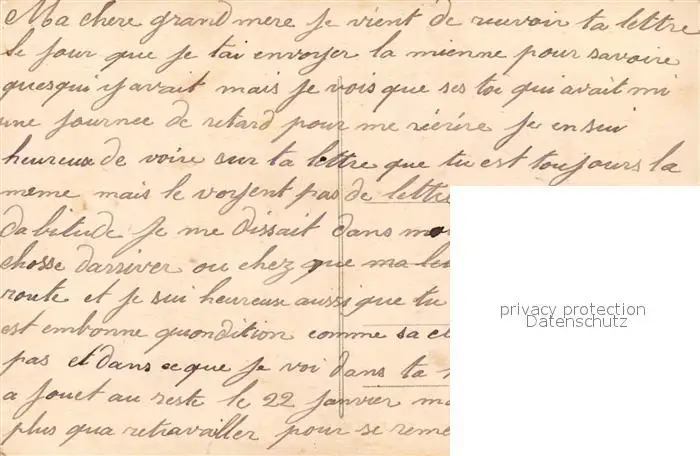 Ma chere grand mere Je vient de recevoir ta lettre
le jour que je tai envoyer la mienne pour savoire
quesqui y avait mais je vois que ses toi qui avait mi
une journee de retard pour me réécrire Je en sui
heureux de voire sur ta lettre que tu est toujours la
meme mais le voyent pas de lettre
dabitude Je me dissait dans mon
chosse darriver ou chez que ma
route et Je sui heureux aussi que tu
est embonne quondition comme sa
pas et dans ce que Je voi dans ta
a jouet au reste le 22 janvier
plus qua retravailler pour se
privacy protection
Datenschutz